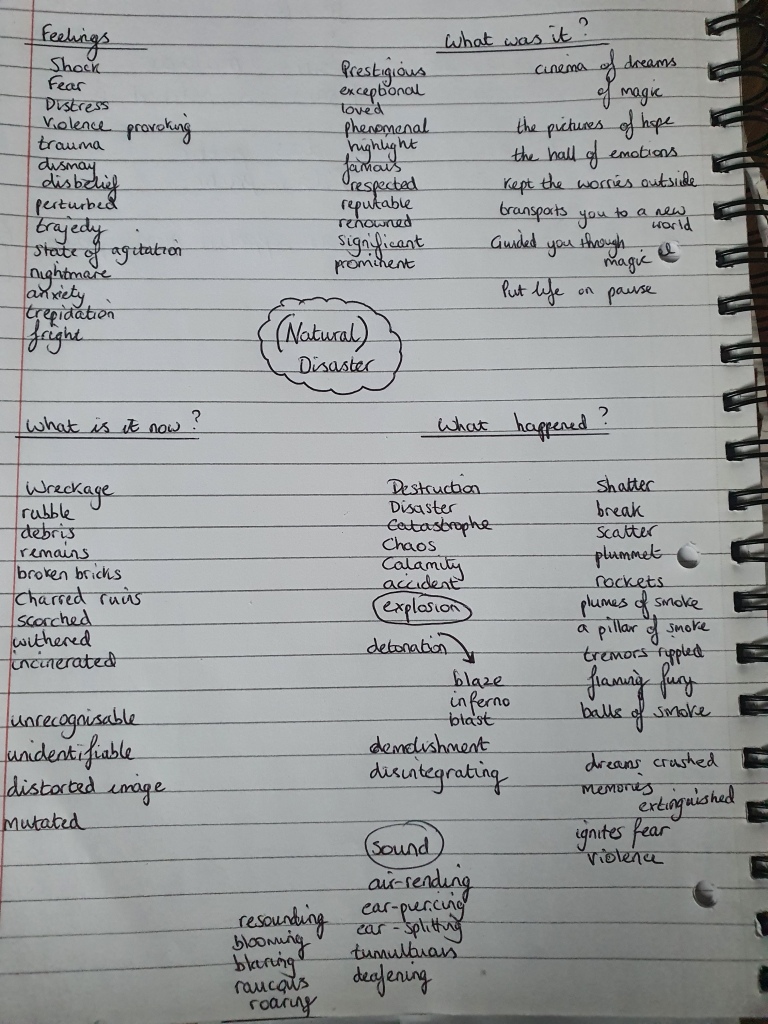 Feelings
Shock
Fear
Distress
Violence provoking
trauma
dismay
disbelief
perturbed
trajedy
state of agitation
nightmare
anxiety
trepidation
fright
What was it?
Prestigious
exceptional
loved
phenomenal
highlight
famous
respected
reputable
renowned
significant
prominent
cinema of dreams
of magic
the pictures of hope
the hall of emotions
kept the worries outside
transports you to a new
world
Guided you through
magic
Put life on pause
(Natural)
Disaster
What is it now?
Wreckage
rubble
debris
remains
broken bricks
Charred ruins
scorched
withered
incinerated
unrecognisable
unidentifiable
distorted image
mutated
What happened?
Destruction
Disaster
Catastrophe
Chaos
Calamity
accident
explosion
detonation
blaze
inferno
blast
demolishment
disintegrating
Shatter
break
scatter
plummet
rockets
plumes of smoke
a pillar of smoke
tremors rippled
flaming fury
balls of smoke
dreams crushed
memories
extinguished
ignites fear
violence
Sound
air-rending
ear-piercing
ear-splitting
tumultuous
deafening
resounding
blooming
blaring
raucous
roaring